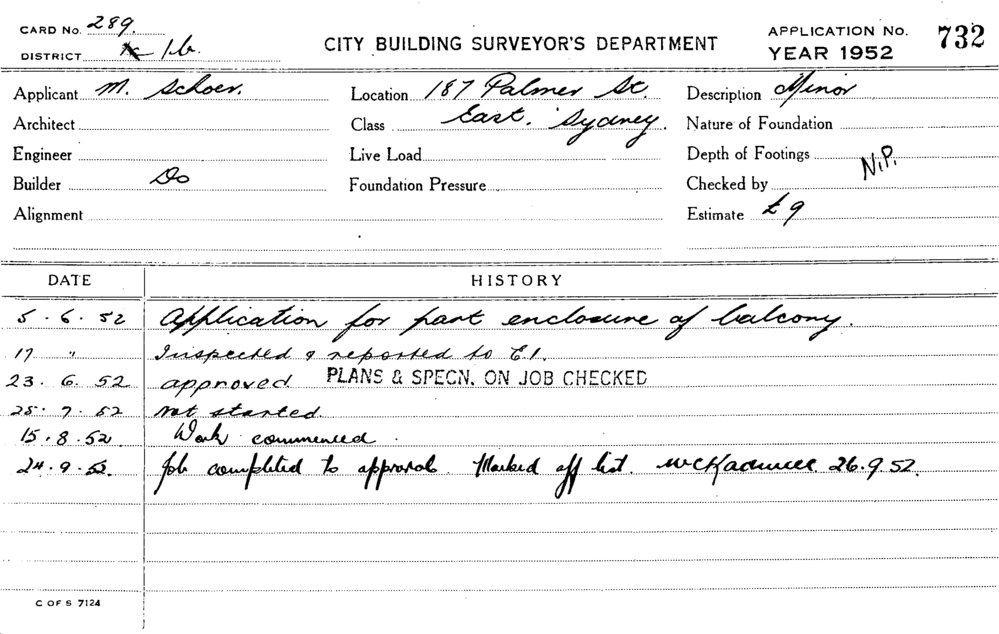 CARD No. 289.
DISTRICT 1b.
CITY BUILDING SURVEYOR'S DEPARTMENT
APPLICATION No. 732
YEAR 1952
Applicant M. Schoer. Location 187 Palmer St. Description Minor
Architect Class East. Sydney. Nature of Foundation
Engineer Live Load Depth of Footings N.P.
Builder Do Foundation Pressure Checked by
Alignment Estimate £9
DATE HISTORY
5.6.52 Application for part enclosure of balcony.
17 " Inspected & reported to E.I.
23.6.52 approved PLANS & SPECN. ON JOB CHECKED
25.7.52 Not started.
15.8.52. Work commenced.
24.9.52. Job completed to approval. Marked off list. 26.9.52.
C OF S 7124